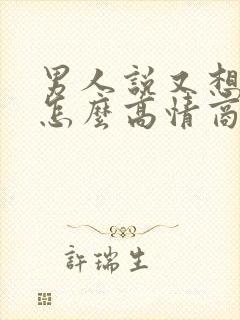 男人說又想
怎麼高情商
許瑞生